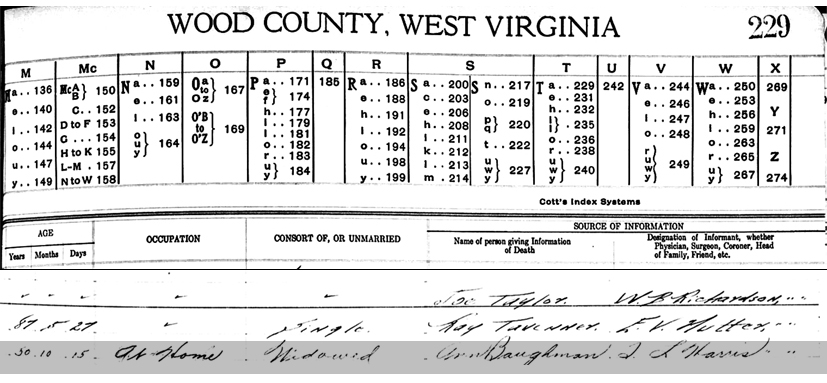 WOOD COUNTY, WEST VIRGINIA 229
M Mc N O P Q R S T U V W X
Ma.. 136 McA B} 150 Na.. 159 Oa to Oz} 167 Pa.. 171 185 Ra.. 186 Sa.. 200 Sn.. 217 Ta.. 229 242 Va.. 244 Wa.. 250 269
e.. 140 C... 152 e.. 161 e f} 174 e.. 188 c.. 203 o.. 219 e.. 231 e.. 246 e.. 253
i.. 142 D to F 153 i.. 163 O'B to O'Z} 169 h.. 177 h.. 191 e.. 206 p q} 220 h.. 232 i.. 247 h.. 256 Y
o.. 144 G.... 154 o u y} 164 i.. 179 i.. 192 h.. 208 t.. 222 i l} 235 o.. 248 i.. 259 271
u.. 147 H to K 155 l.. 181 o.. 194 i.. 211 u w y} 227 o.. 236 r u w y} 249 o.. 263 Z
y.. 149 L-M . 157 o.. 182 u.. 198 k.. 212 r.. 238 r.. 265 274
N to W 158 r.. 183 y.. 199 l.. 213 u w y} 240 u y} 267
u y} 184 m. 214
Cott's Index Systems
AGE OCCUPATION CONSORT OF, OR UNMARRIED SOURCE OF INFORMATION
Years Months Days Name of person giving Information of Death Designation of Informant, whether Physician, Surgeon, Coroner, Head of Family, Friend, etc.
" " " Joe Taylor. W B Richardson, "
87. 5 27 " Single. Kay Tavenner. "
50. 10 . 15 At Home Widowed Ann Baughman. Harris "